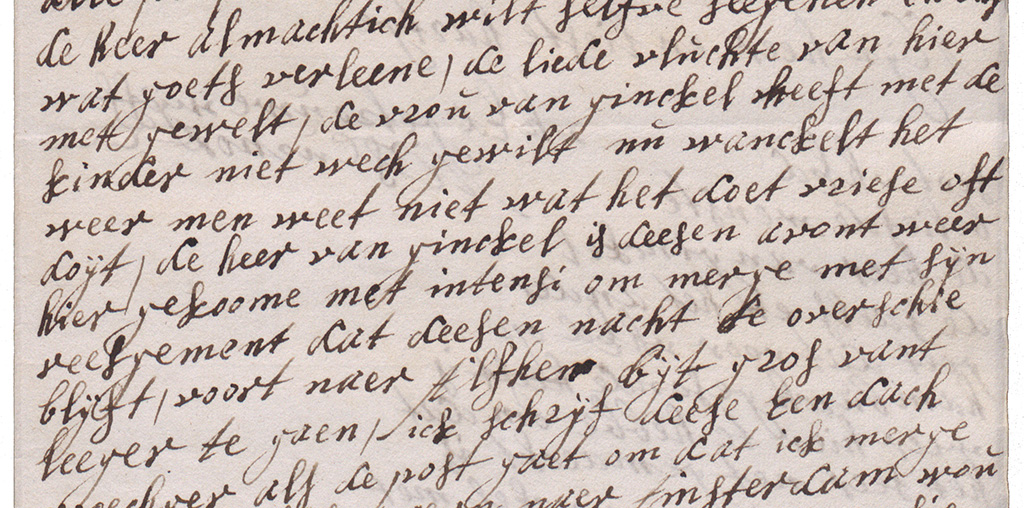 de heer almachtich wilt selfve seegenen
wat goets verleene, de liede vluchte van hier
met gewelt, de vrou van ginckel heeft met de
kinder niet wech gewilt nu wanckelt het
weer men weet niet wat het doet vriese oft
doijt, de heer van ginckel is deesen avont weer
hier gekoome met intensi om merge met sijn
reesgement dat deesen nacht te overschie
blijft, voort naer bijt gros vant
leeger te gaen, ick schrijf deese een dach
als de post gaet om dat ick merge
naer Amsterdam wou